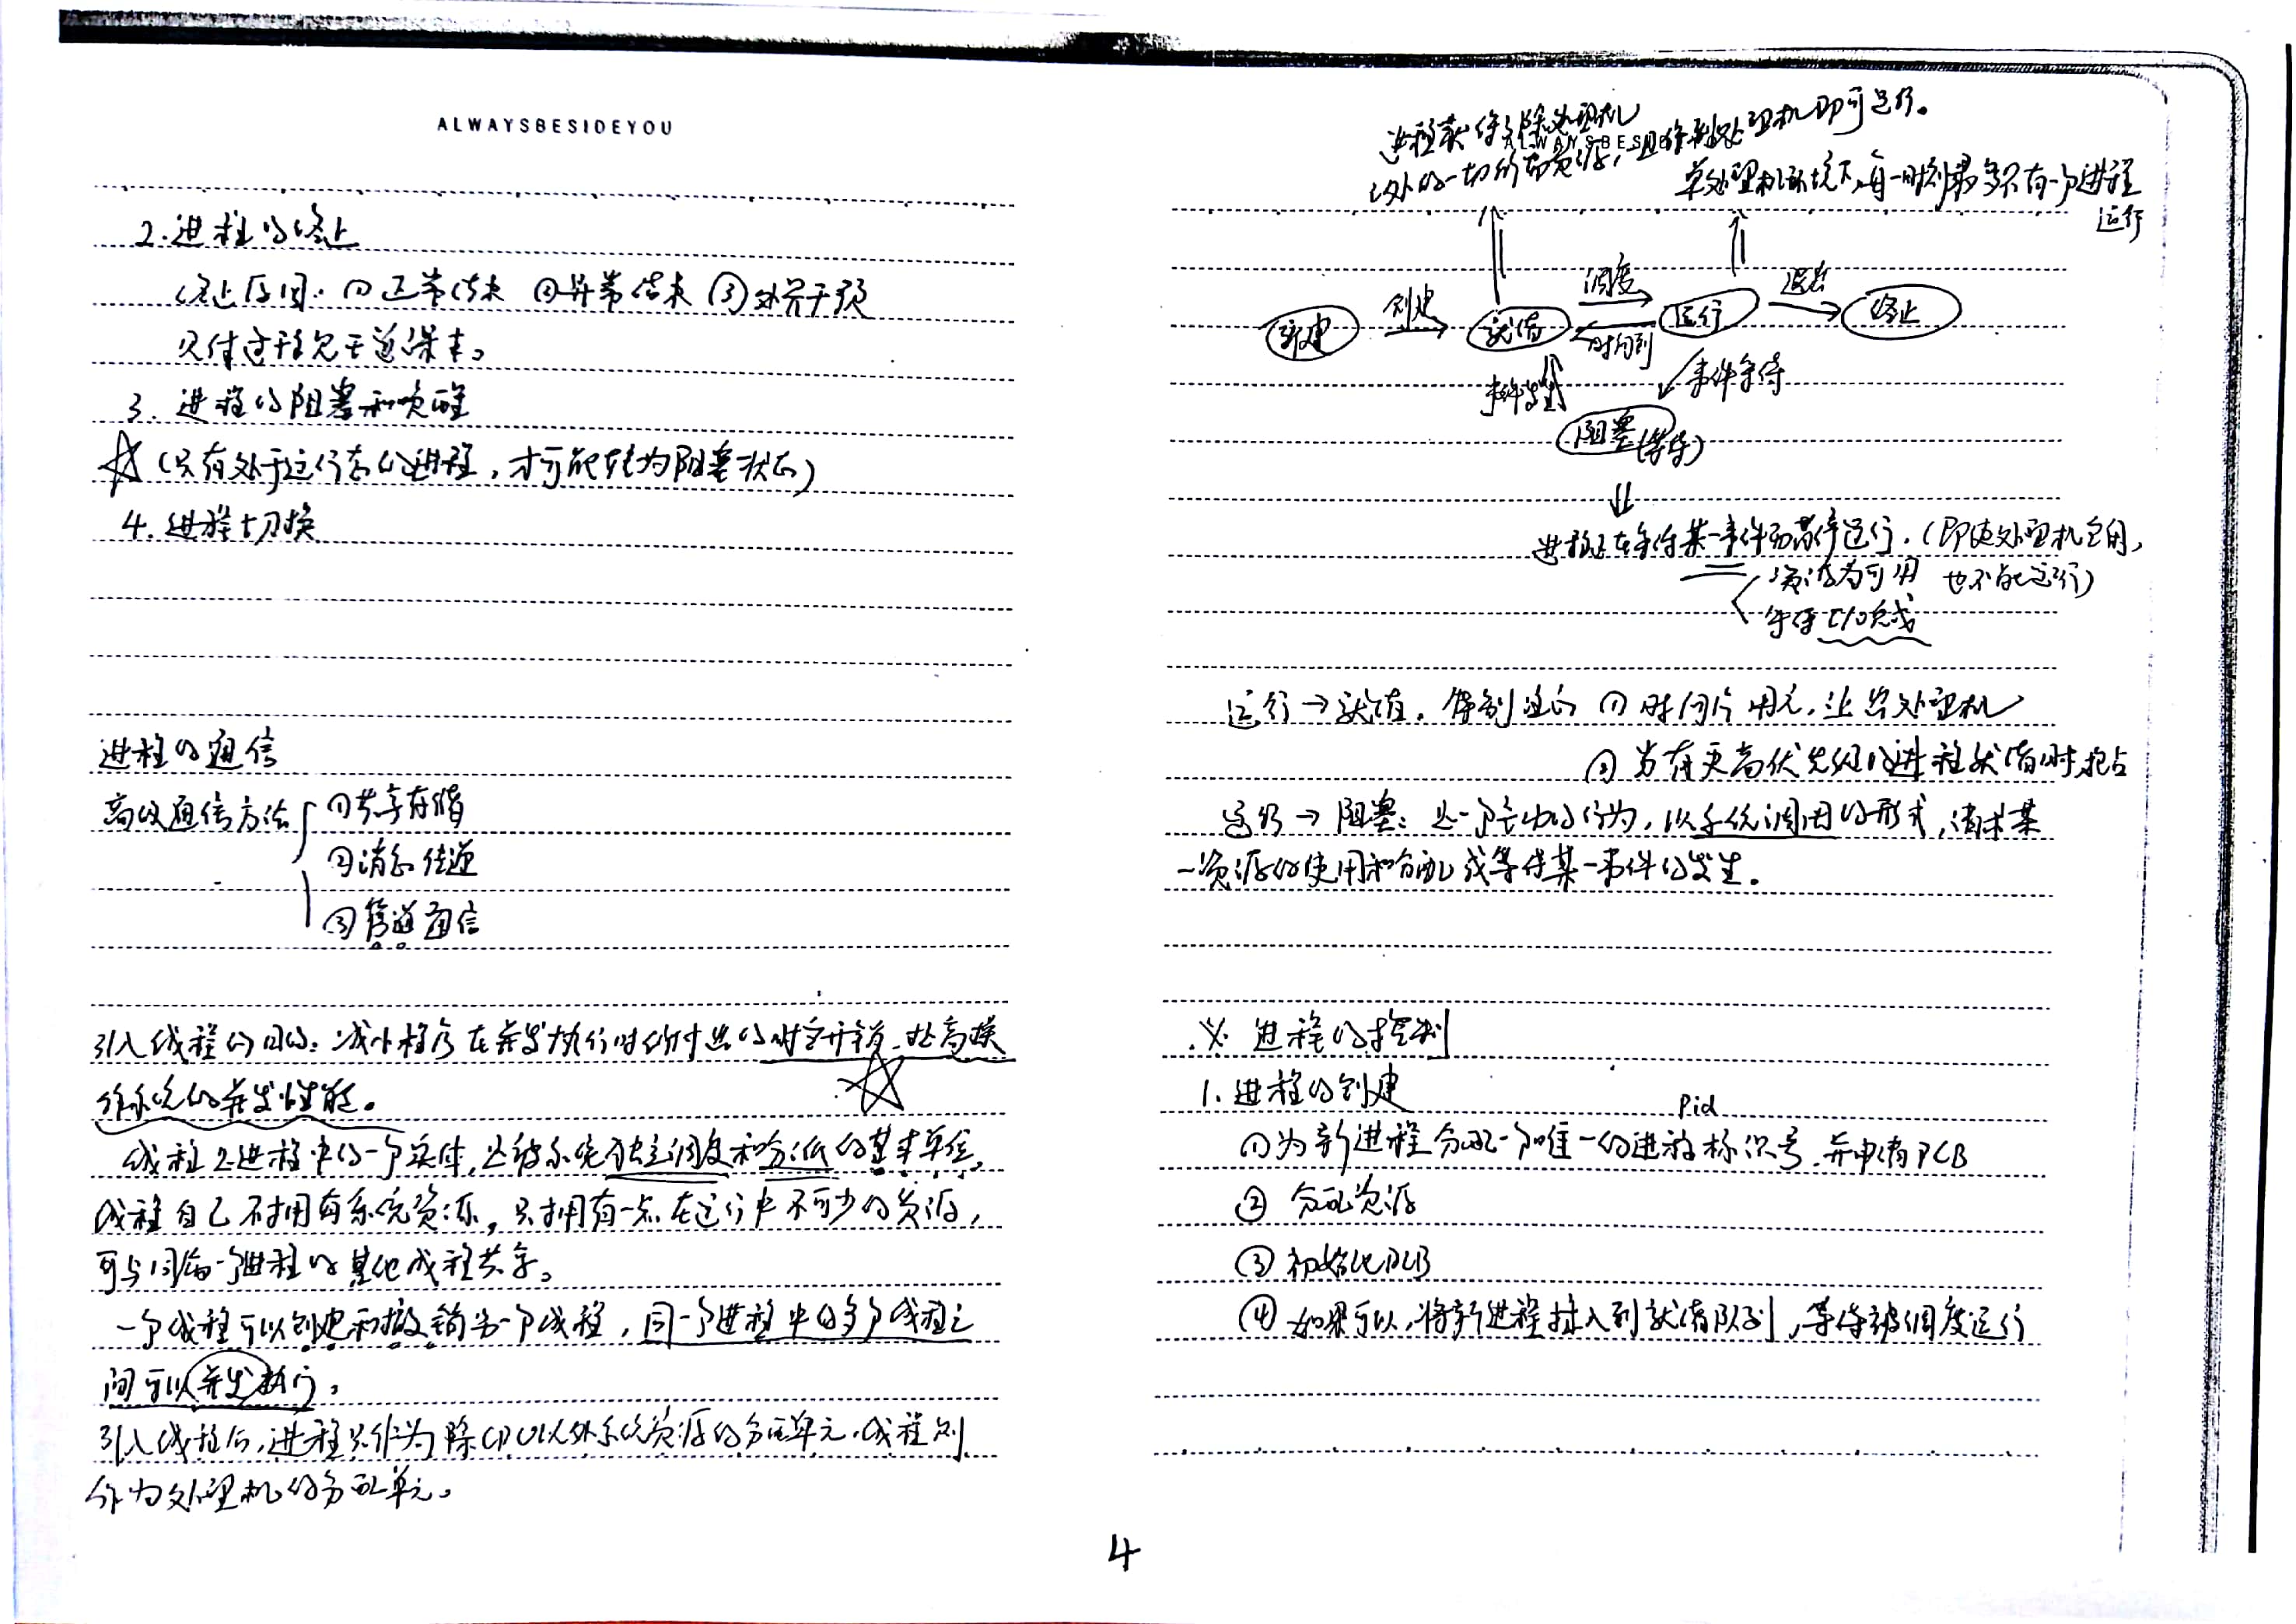 ALWAYSBESIDEYOU
2. 进程的终止
终止原因: ①正常结束 ②异常结束 ③外界干预
3. 进程的阻塞和唤醒
☆(只有处于运行态的进程, 才可能转为阻塞状态)
4. 进程切换
进程的通信
高级通信方法
①共享存储
②消息传递
③管道通信
引入线程的目的: 减小程序在并发执行时所付出的时空开销, 提高操
作系统的并发性能。
☆
线程是进程中的一个实体, 是被系统独立调度和分派的基本单位,
线程自己不拥有系统资源, 只拥有一点在运行中不可少的资源,
可与同属一个进程的其他线程共享。
一个线程可以创建和撤销另一个线程, 同一个进程中的多个线程之
间可以并发执行。
引入线程后, 进程只作为除CPU以外系统资源的分配单元, 线程则
作为处理机的分配单元。
ALWAYSBESIDEYOU
进程获得了除处理机
以外的一切所需资源, 一旦得到处理机即可运行。
单处理机环境下, 每一时刻最多只有一个进程
运行
新建 创建 就绪 调度 运行 退出 终止
时间到
事件发生 事件等待
阻塞(等待)
进程正在等待某一事件而暂停运行. (即使处理机空闲,
资源为可用 也不能运行)
等待I/O完成
运行→就绪. 得到处的 ①时间片用完, 让出处理机
②当有更高优先级的进程就绪时, 抢占
运行→阻塞: 是一个主动的行为, 以系统调用的形式, 请求某
一资源的使用和分配或等待某一事件的发生.
※ 进程的控制
1. 进程的创建
pid
①为新进程分配一个唯一的进程标识号, 并申请PCB
② 分配资源
③ 初始化PCB
④ 如果可以, 将新进程插入到就绪队列, 等待被调度运行
4